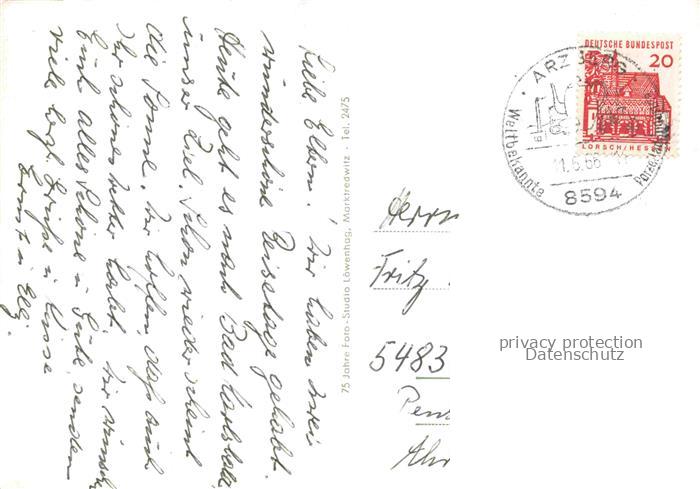 Liebe Eltern! Wir haben zwei
wunderschöne Reisetage gehabt.
Heute geht es nach Bad
unser Ziel. Schon wieder scheint
die Sonne. Wir hoffen, daß auch
Ihr schönes Wetter habt. Wir wünschen
Euch alles Schöne u. Gute, senden
viele herzl. Grüße u. Küsse
Ernst u. Elly.
75 Jahre Foto-Studio Löwenhag, Marktredwitz · Tel. 2475
DEUTSCHE BUNDESPOST
20
LORSCH/HESSEN
ARZBERG
Weltbekannte
11.6.66
8594
Herrn
Fritz
5483
Ahr
privacy protection
Datenschutz